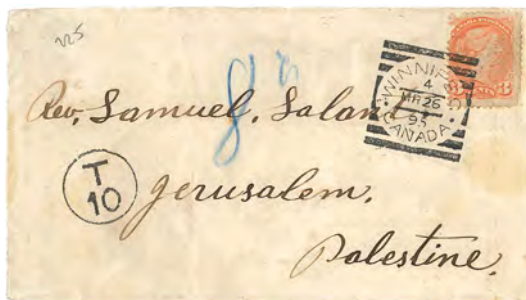 WINNIPEG
4
MR 26
95
CANADA
3 3
Rev. Samuel, Salant
T
10
Jerusalem.
Palestine.